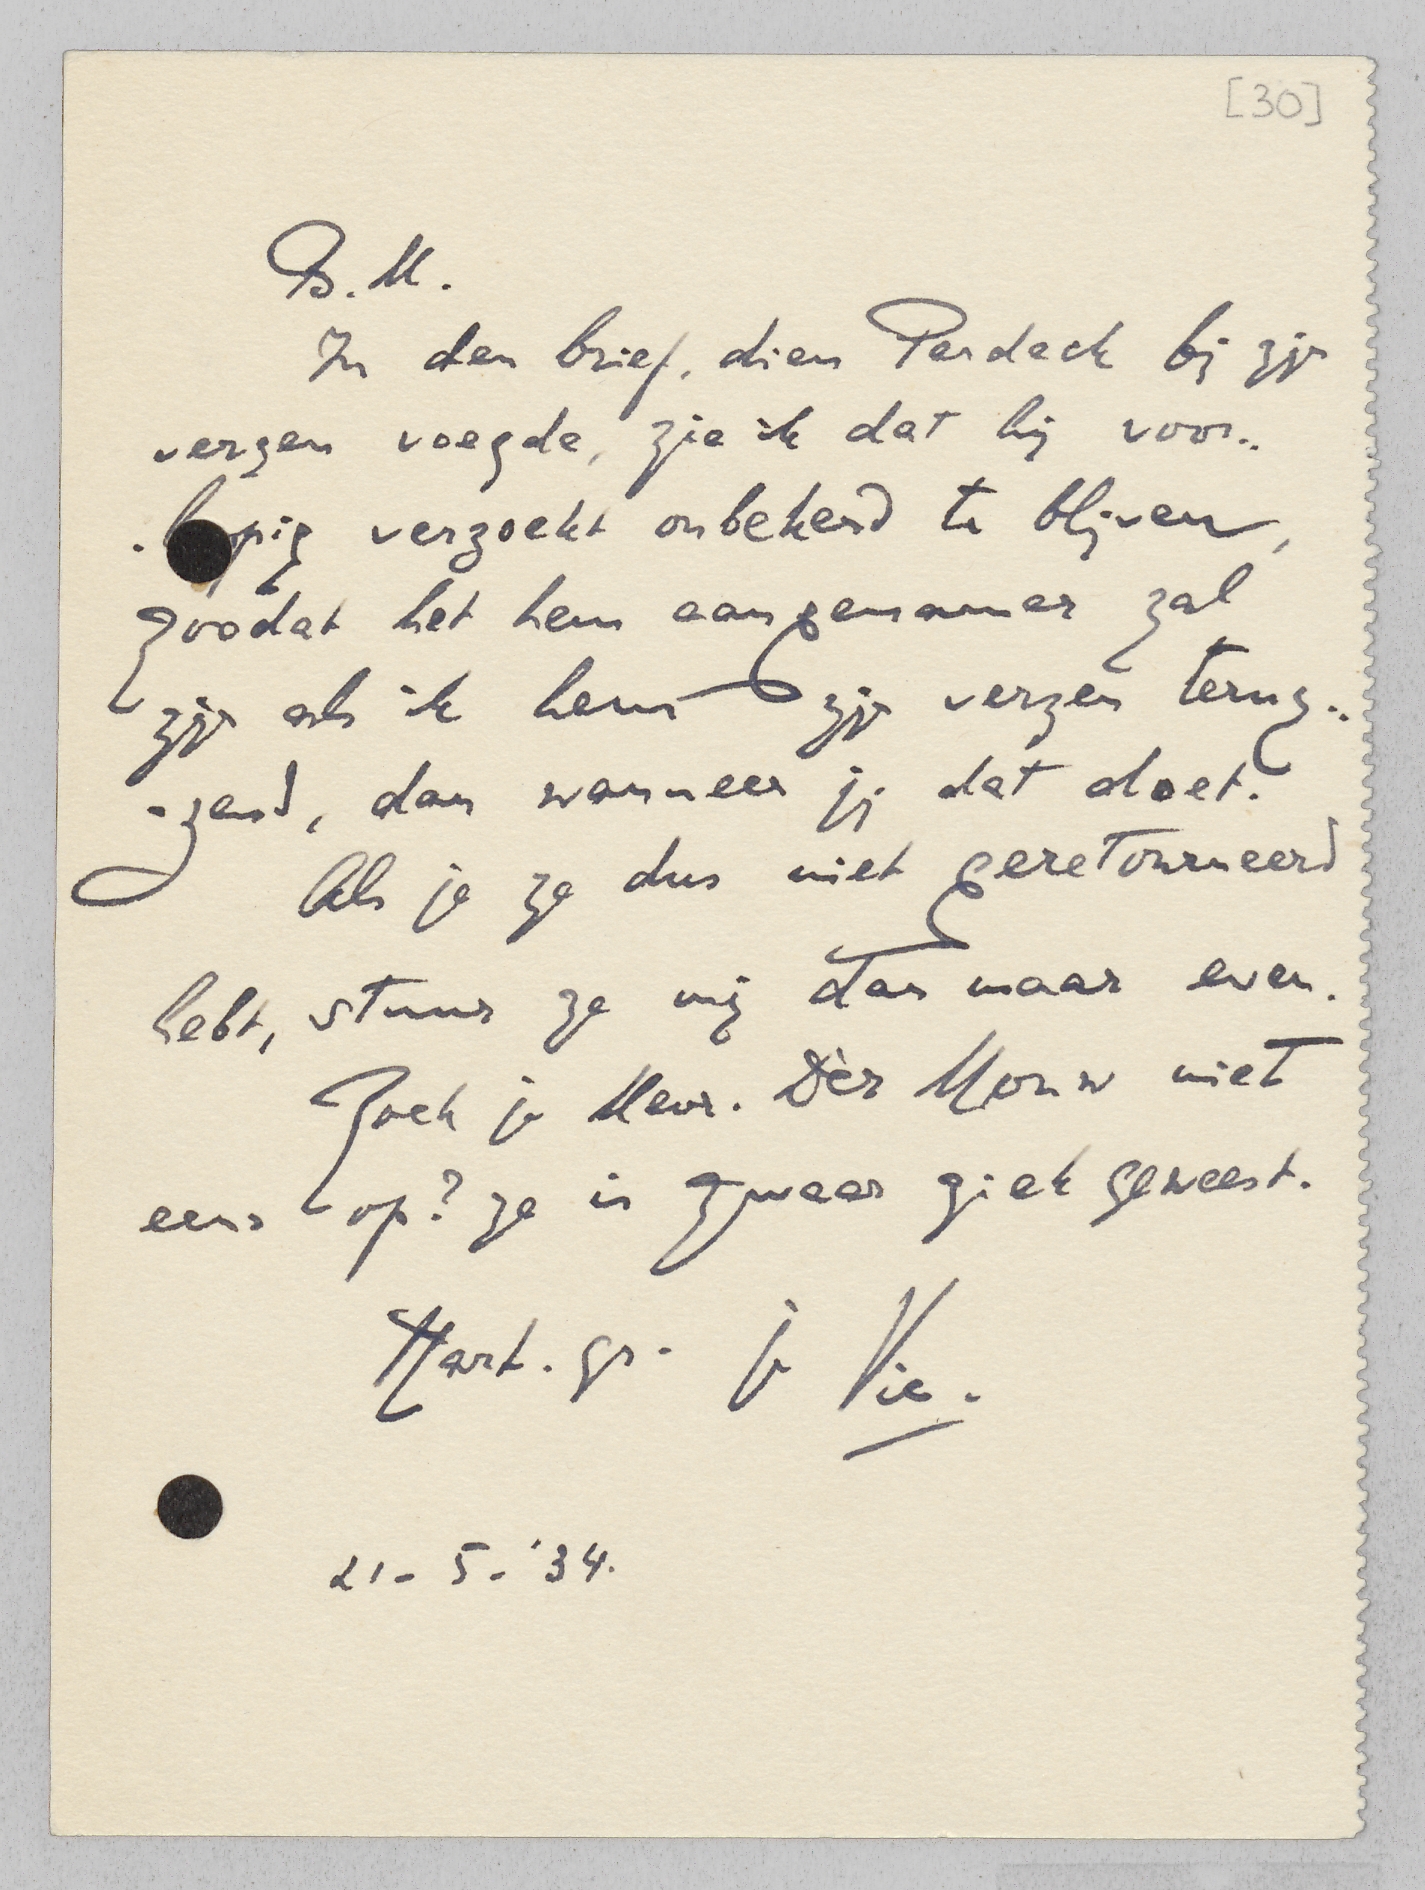 [30]
B.M.
In den brief, dien Perdeck bij zijn
verzen voegde, zie ik dat hij voor-
-loopig verzoekt onbekend te blijven,
zoodat het hem aangenamer zal
zijn als ik hem zijn verzen terug-
-zend, dan wanneer jij dat doet.
Als je ze dus niet geretourneerd
hebt, stuur ze mij dan maar even.
Zoek je Mevr. Dèr Mouw niet
eens op? ze is zwaar ziek geweest.
Hart. gr. je Vic.
21-5-'34.